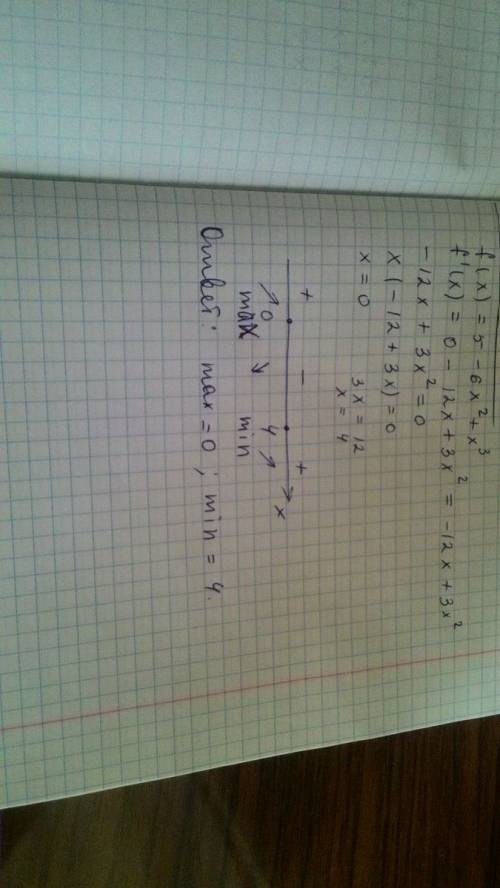 f(x) = 5 - 6x² + x³
f'(x) = 0 - 12x + 3x² = -12x + 3x²
-12x + 3x² = 0
x(-12 + 3x) = 0
x = 0 3x = 12
x = 4
+ - +
0 4 x
max min
Ответ: max = 0 ; min = 4.